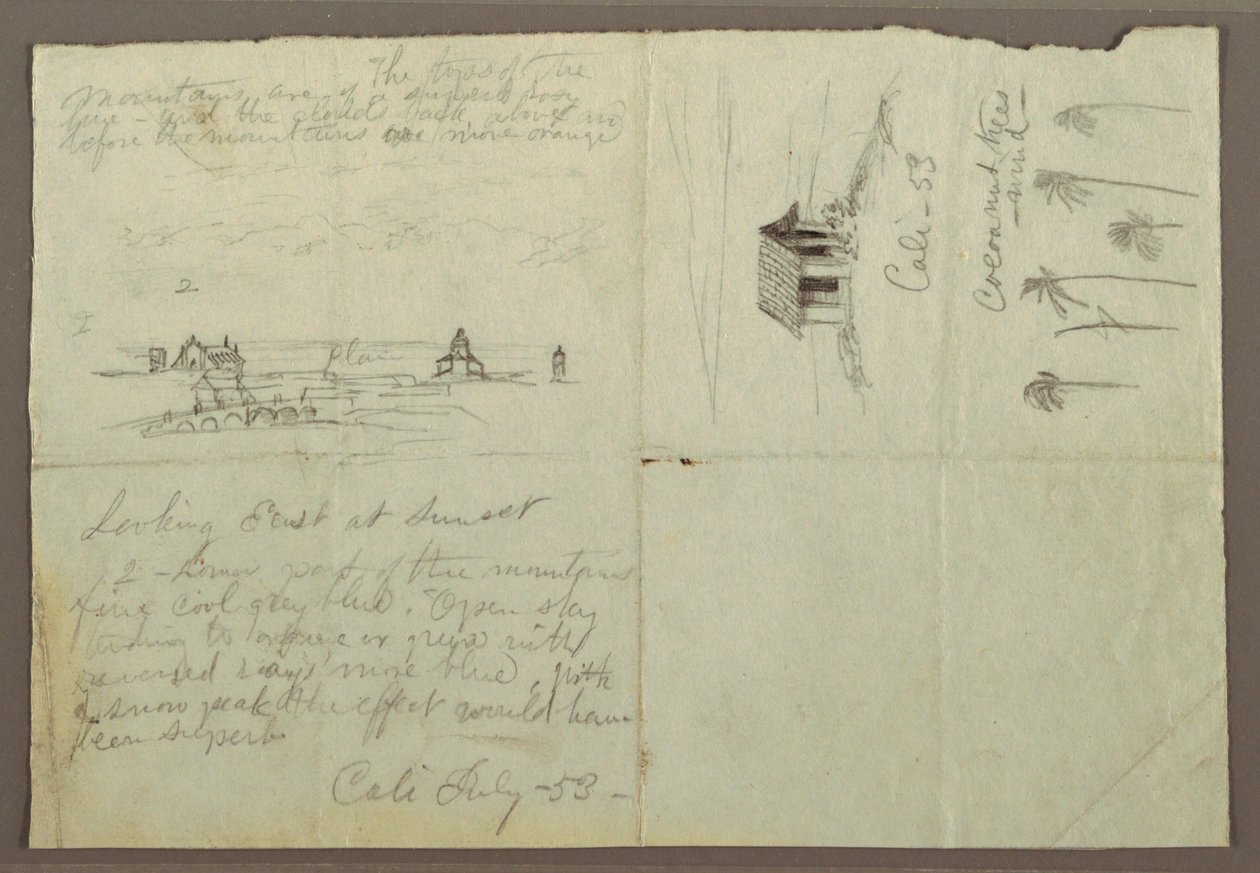 The tops of the
mountains are of a superb rose
hue - and the clouds back above and
before the mountains are more orange
2
plain
Looking East at Sunset
2 - Lower part of the mountains
fine cool grey blue. Open sky
tending to or green with
reversed rays more blue, with
a snow peak the effect would have
been superb
Cali July - 53 -
Cali - 53
Cocoanut trees
- wind -